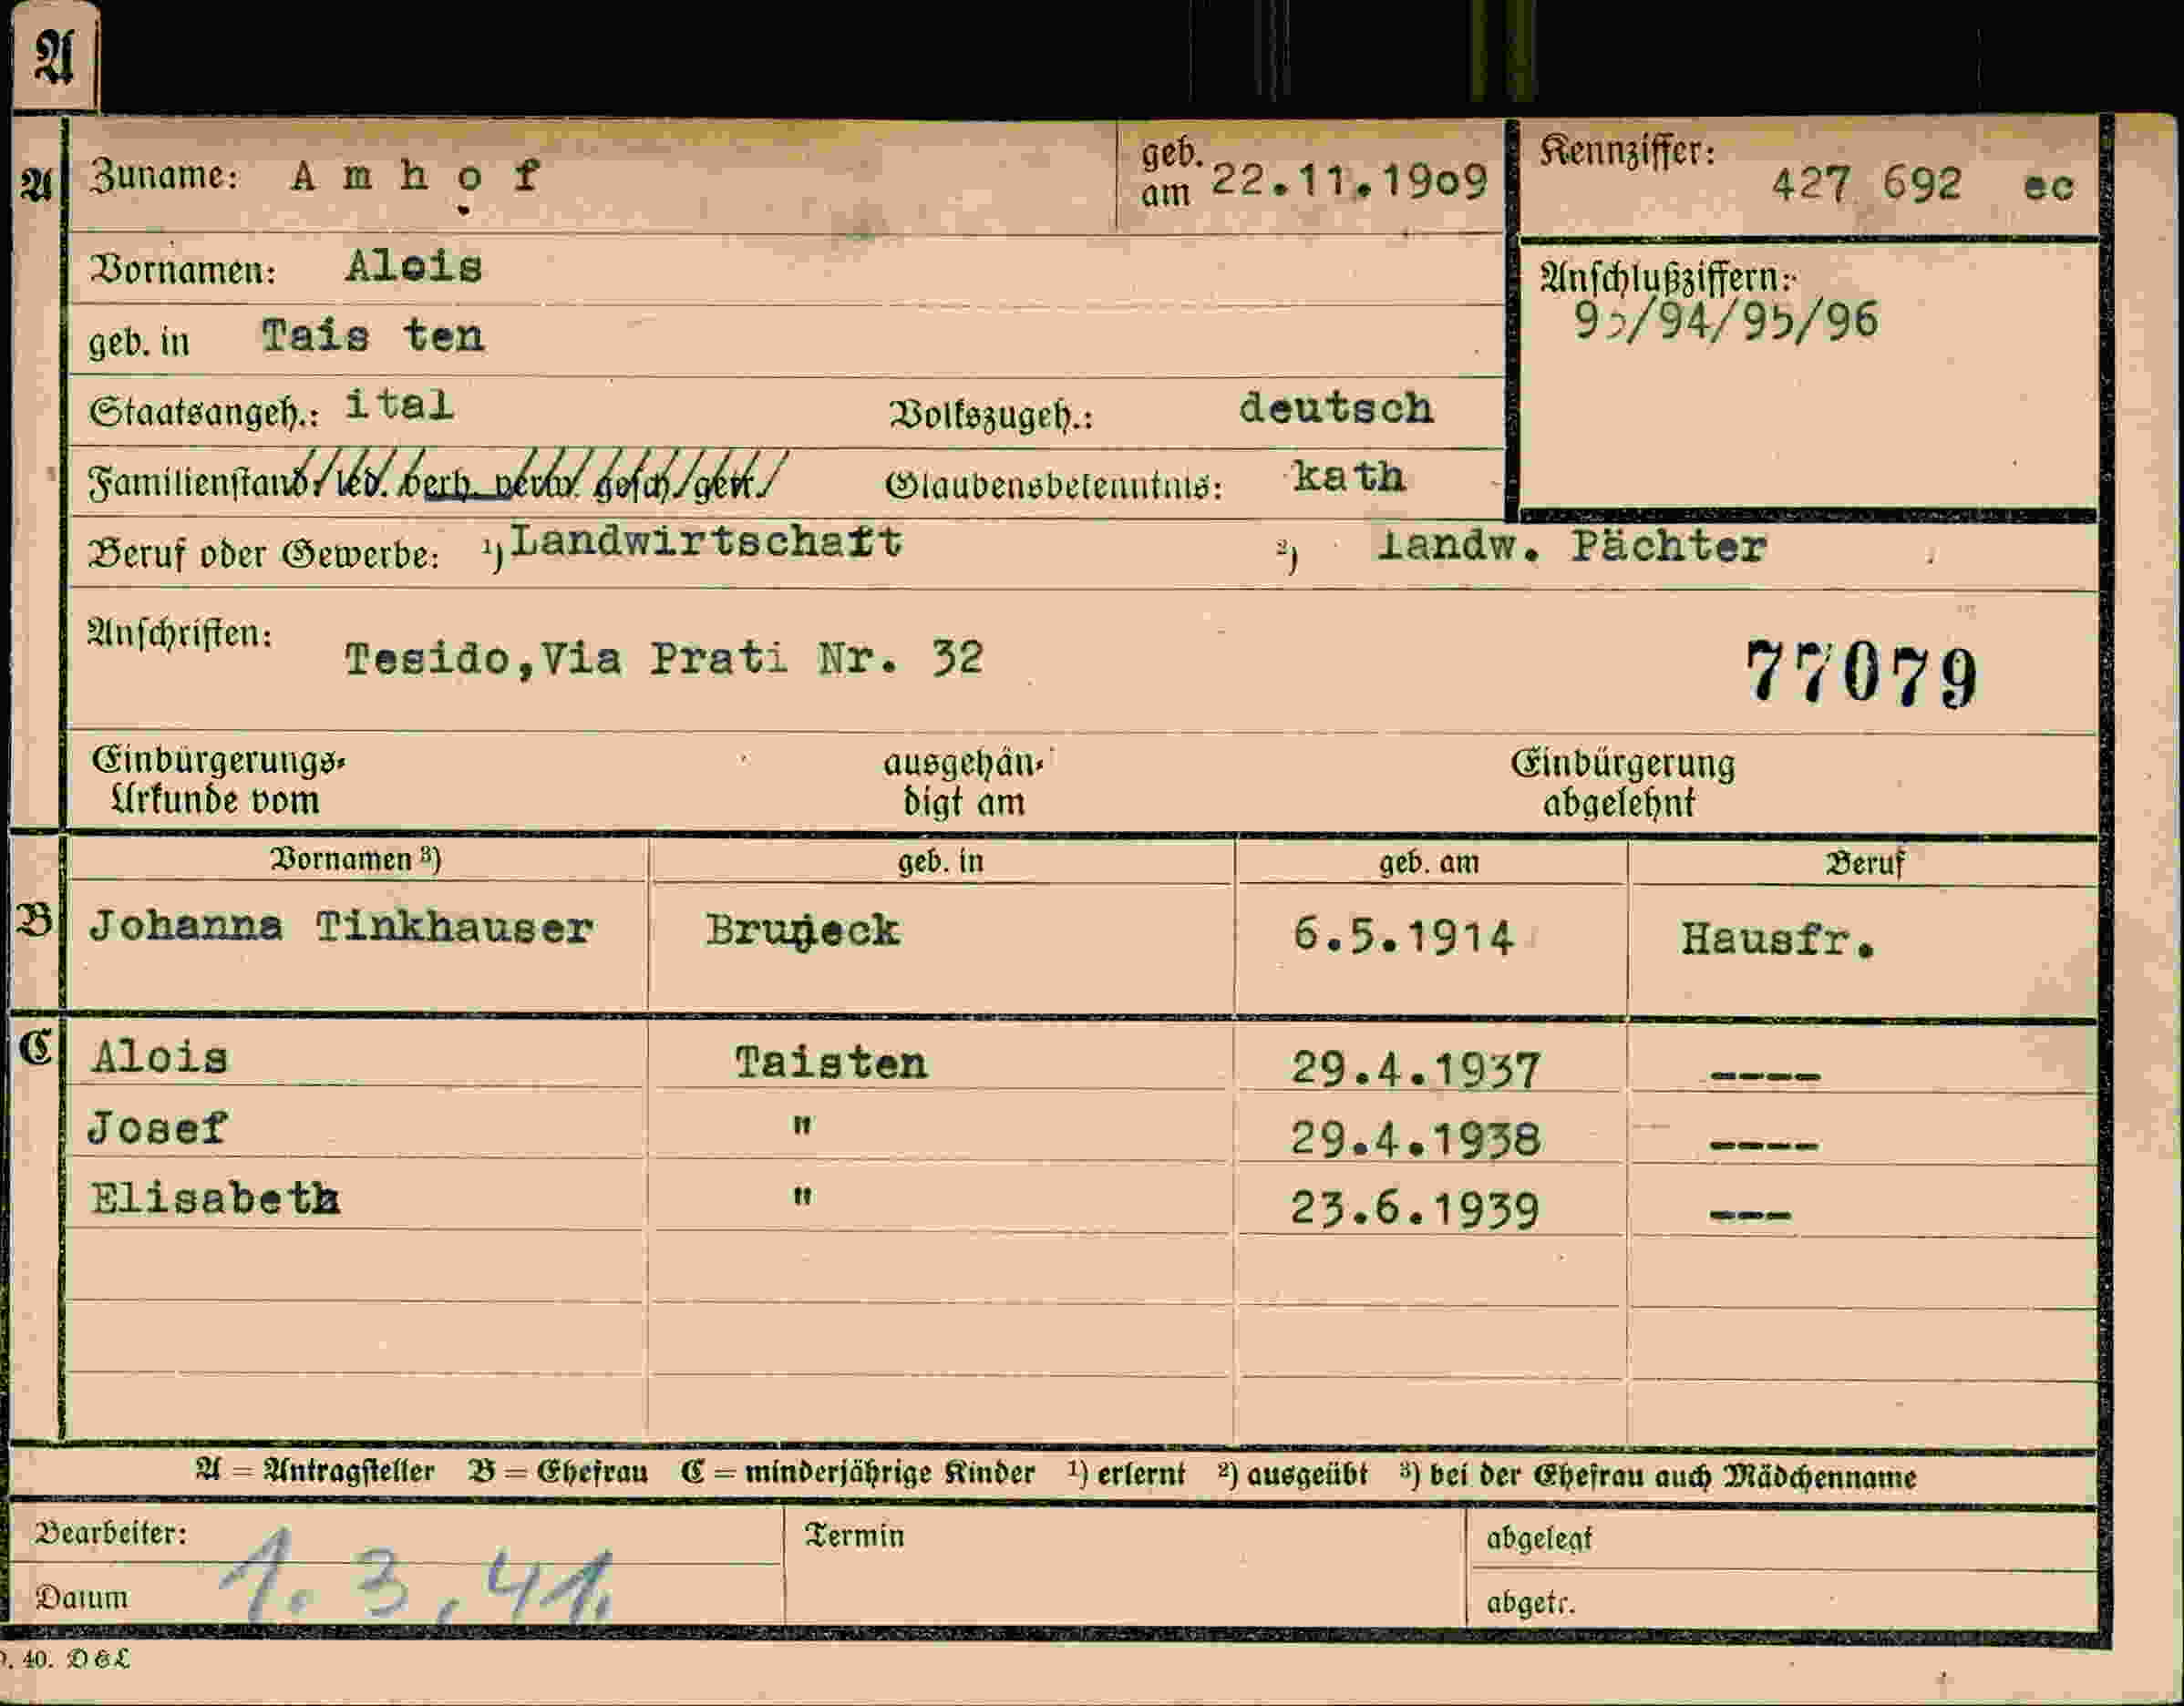 A
A Zuname: A m h o f geb. am 22.11.19o9 Kennziffer: 427 692 ec
Vornamen: Alois Anschlußziffern:
geb. in Tais ten /94/95/96
Staatsangeh.: ital Volkszugeh.: deutsch
Familienstand/led. verh. verw. gesch./getr./ Glaubensbekenntnis: kath
Beruf oder Gewerbe: ¹) Landwirtschaft ²) landw. Pächter
Anschriften: Tesido,Via Prati Nr. 32 77079
Einbürgerungs- ausgehän- Einbürgerung
Urkunde vom digt am abgelehnt
Vornamen ³) geb. in geb. am Beruf
B Johanna Tinkhauser 6.5.1914 Hausfr.
C Alois Taisten 29.4.1937 ----
Josef " 29.4.1938 ----
Elisabeth " 23.6.1939 ---
A = Antragsteller B = Ehefrau C = minderjährige Kinder ¹) erlernt ²) ausgeübt ³) bei der Ehefrau auch Mädchenname
Bearbeiter: Termin abgelegt
Datum 1. 3. 41. abgetr.
40. D & L